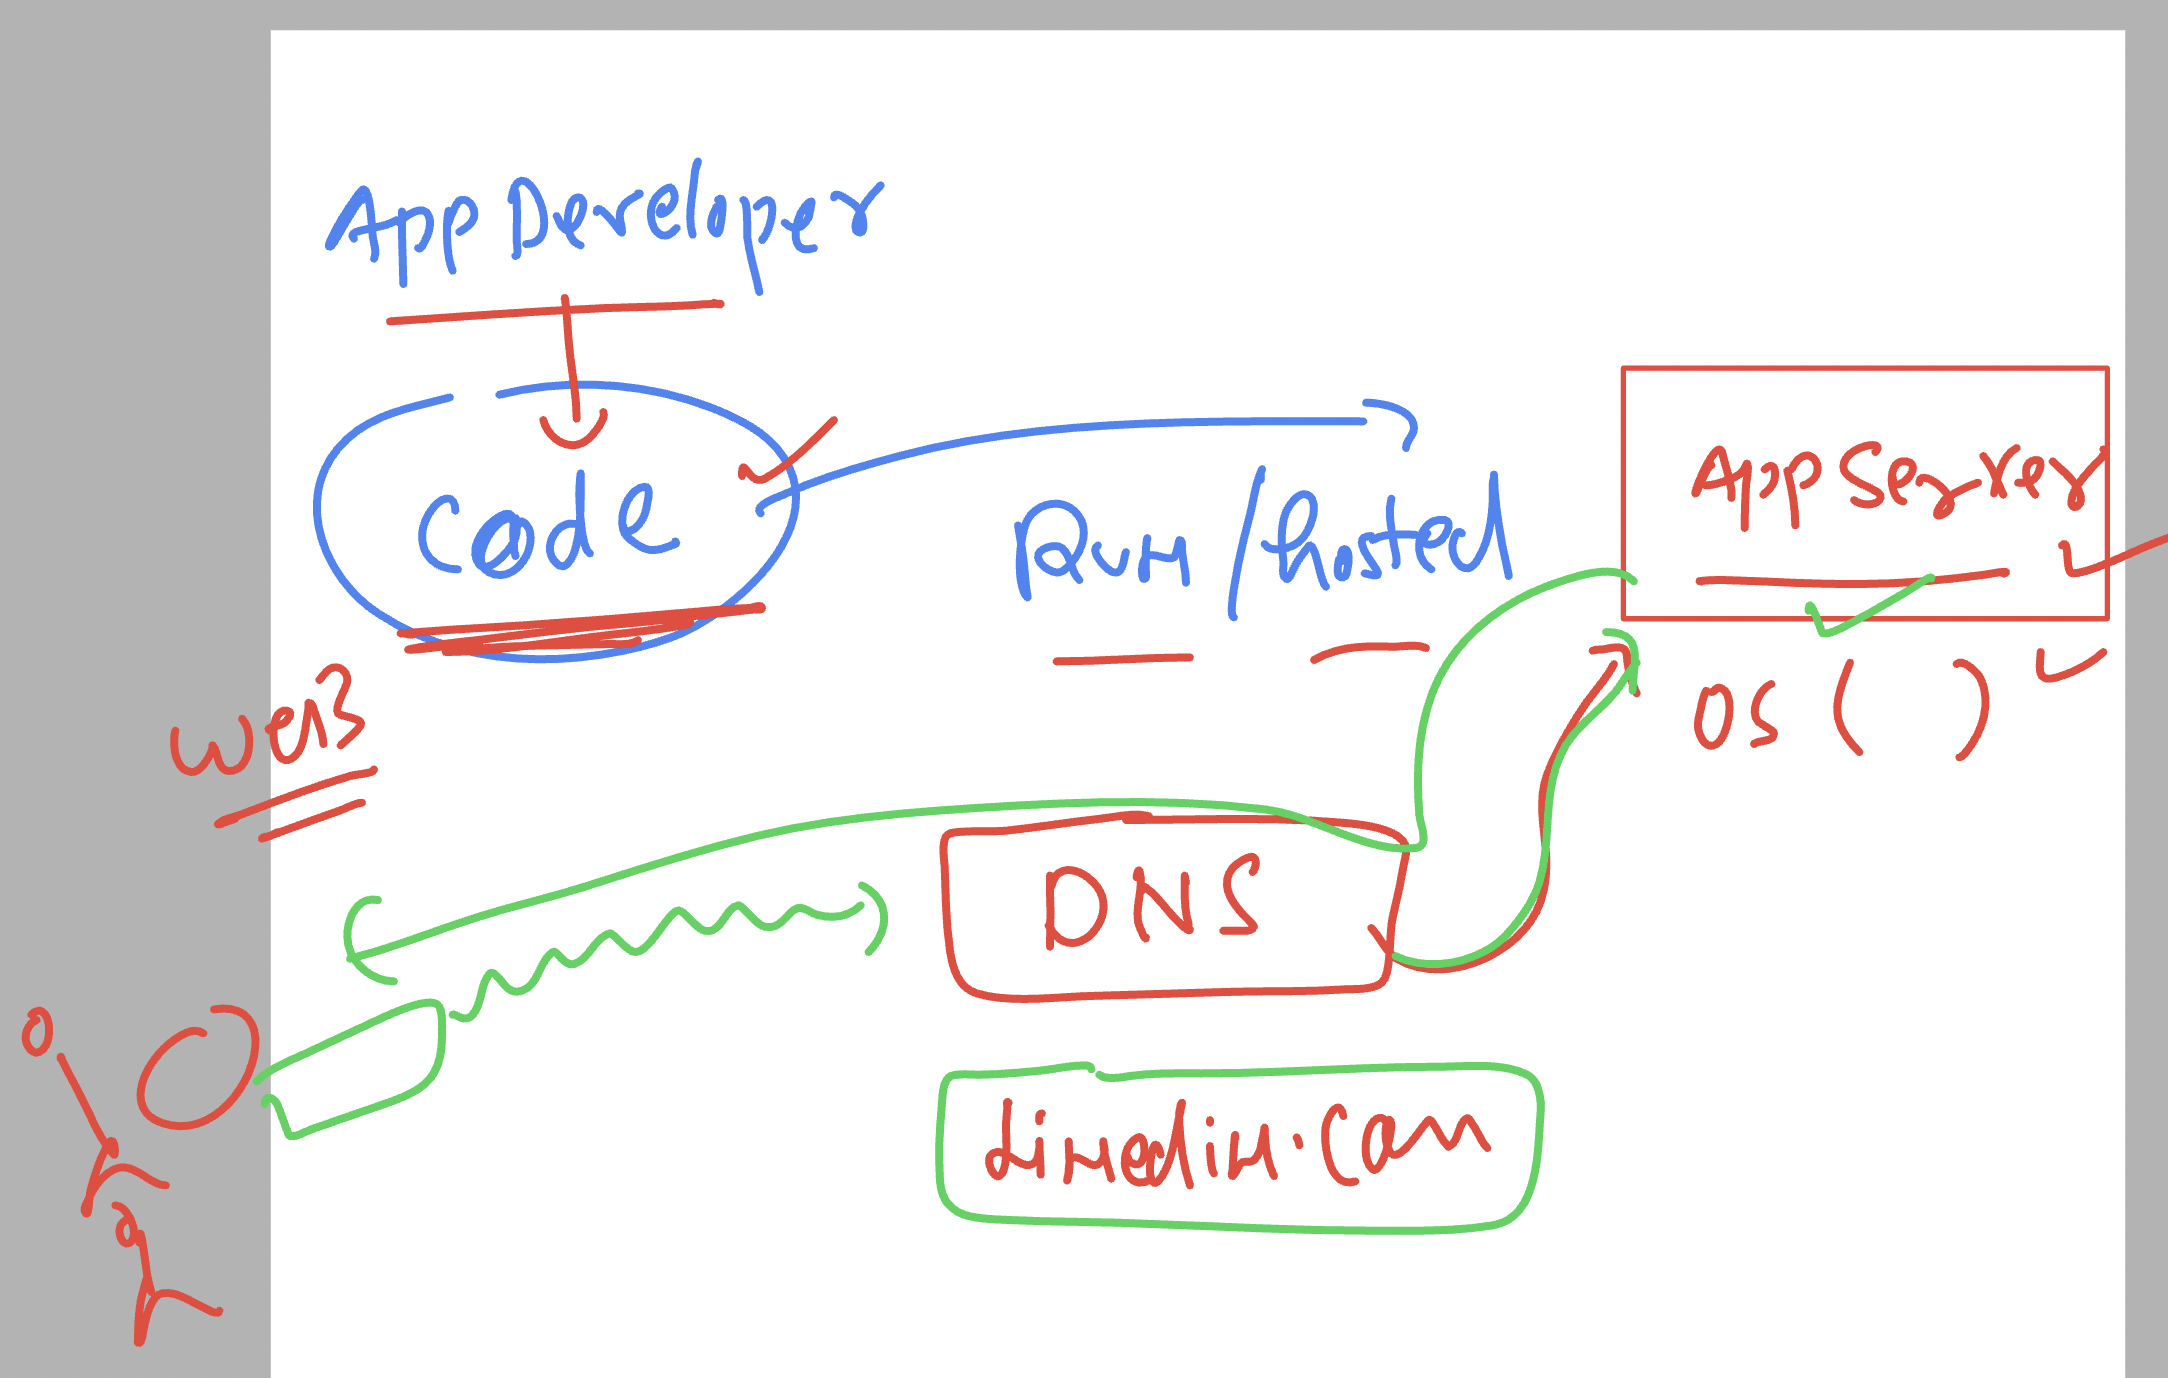 App Developer
Code
Run/hosted
App Server
OS ( )
DNS
Linedin.com